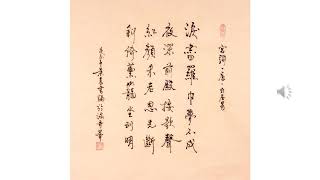 宮詞 唐 白居易
淚盡羅巾夢不成
夜深前殿按歌聲
紅顏未老恩先斷
斜倚薰籠坐到明